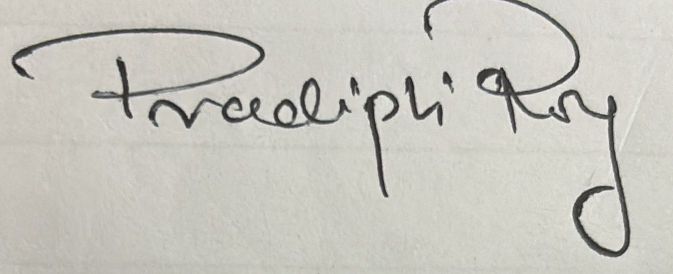 Pradipti Roy